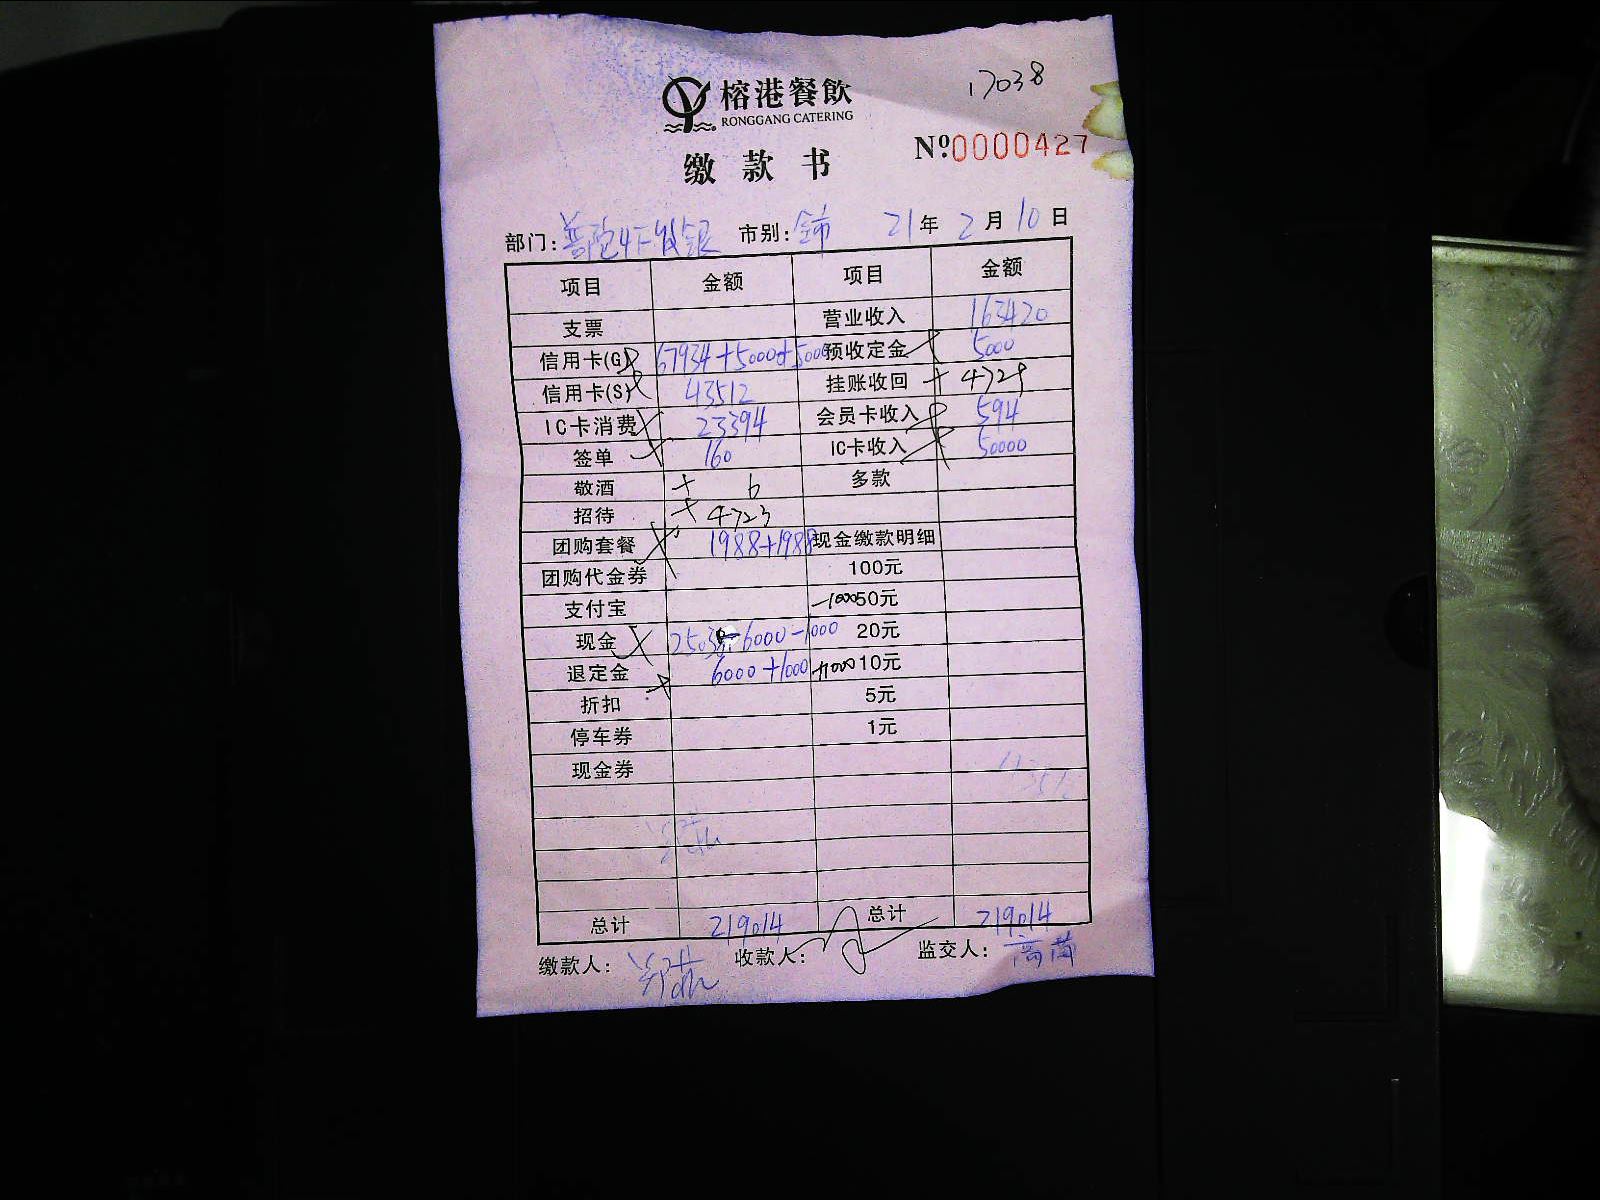 17038
榕港餐飲
RONGGANG CATERING
缴款书
Nº.0000427
部门: 市别: 全市 21年2月10日
项目 金额 项目 金额
支票 营业收入 163420
信用卡(G) 67934+5000+5000 预收定金 5000
信用卡(S) 43512 挂账收回 + 4729
IC卡消费 23394 会员卡收入 594
签单 160 IC卡收入 50000
敬酒 + 6 多款
招待 + 4723
团购套餐 1988+1988 现金缴款明细
团购代金券 100元
支付宝 -1000 50元
现金 -6000-1000 20元
退定金 6000+1000 +1000 10元
折扣 5元
停车券 1元
现金券
总计 219014 总计 219014
缴款人: 收款人: 监交人: